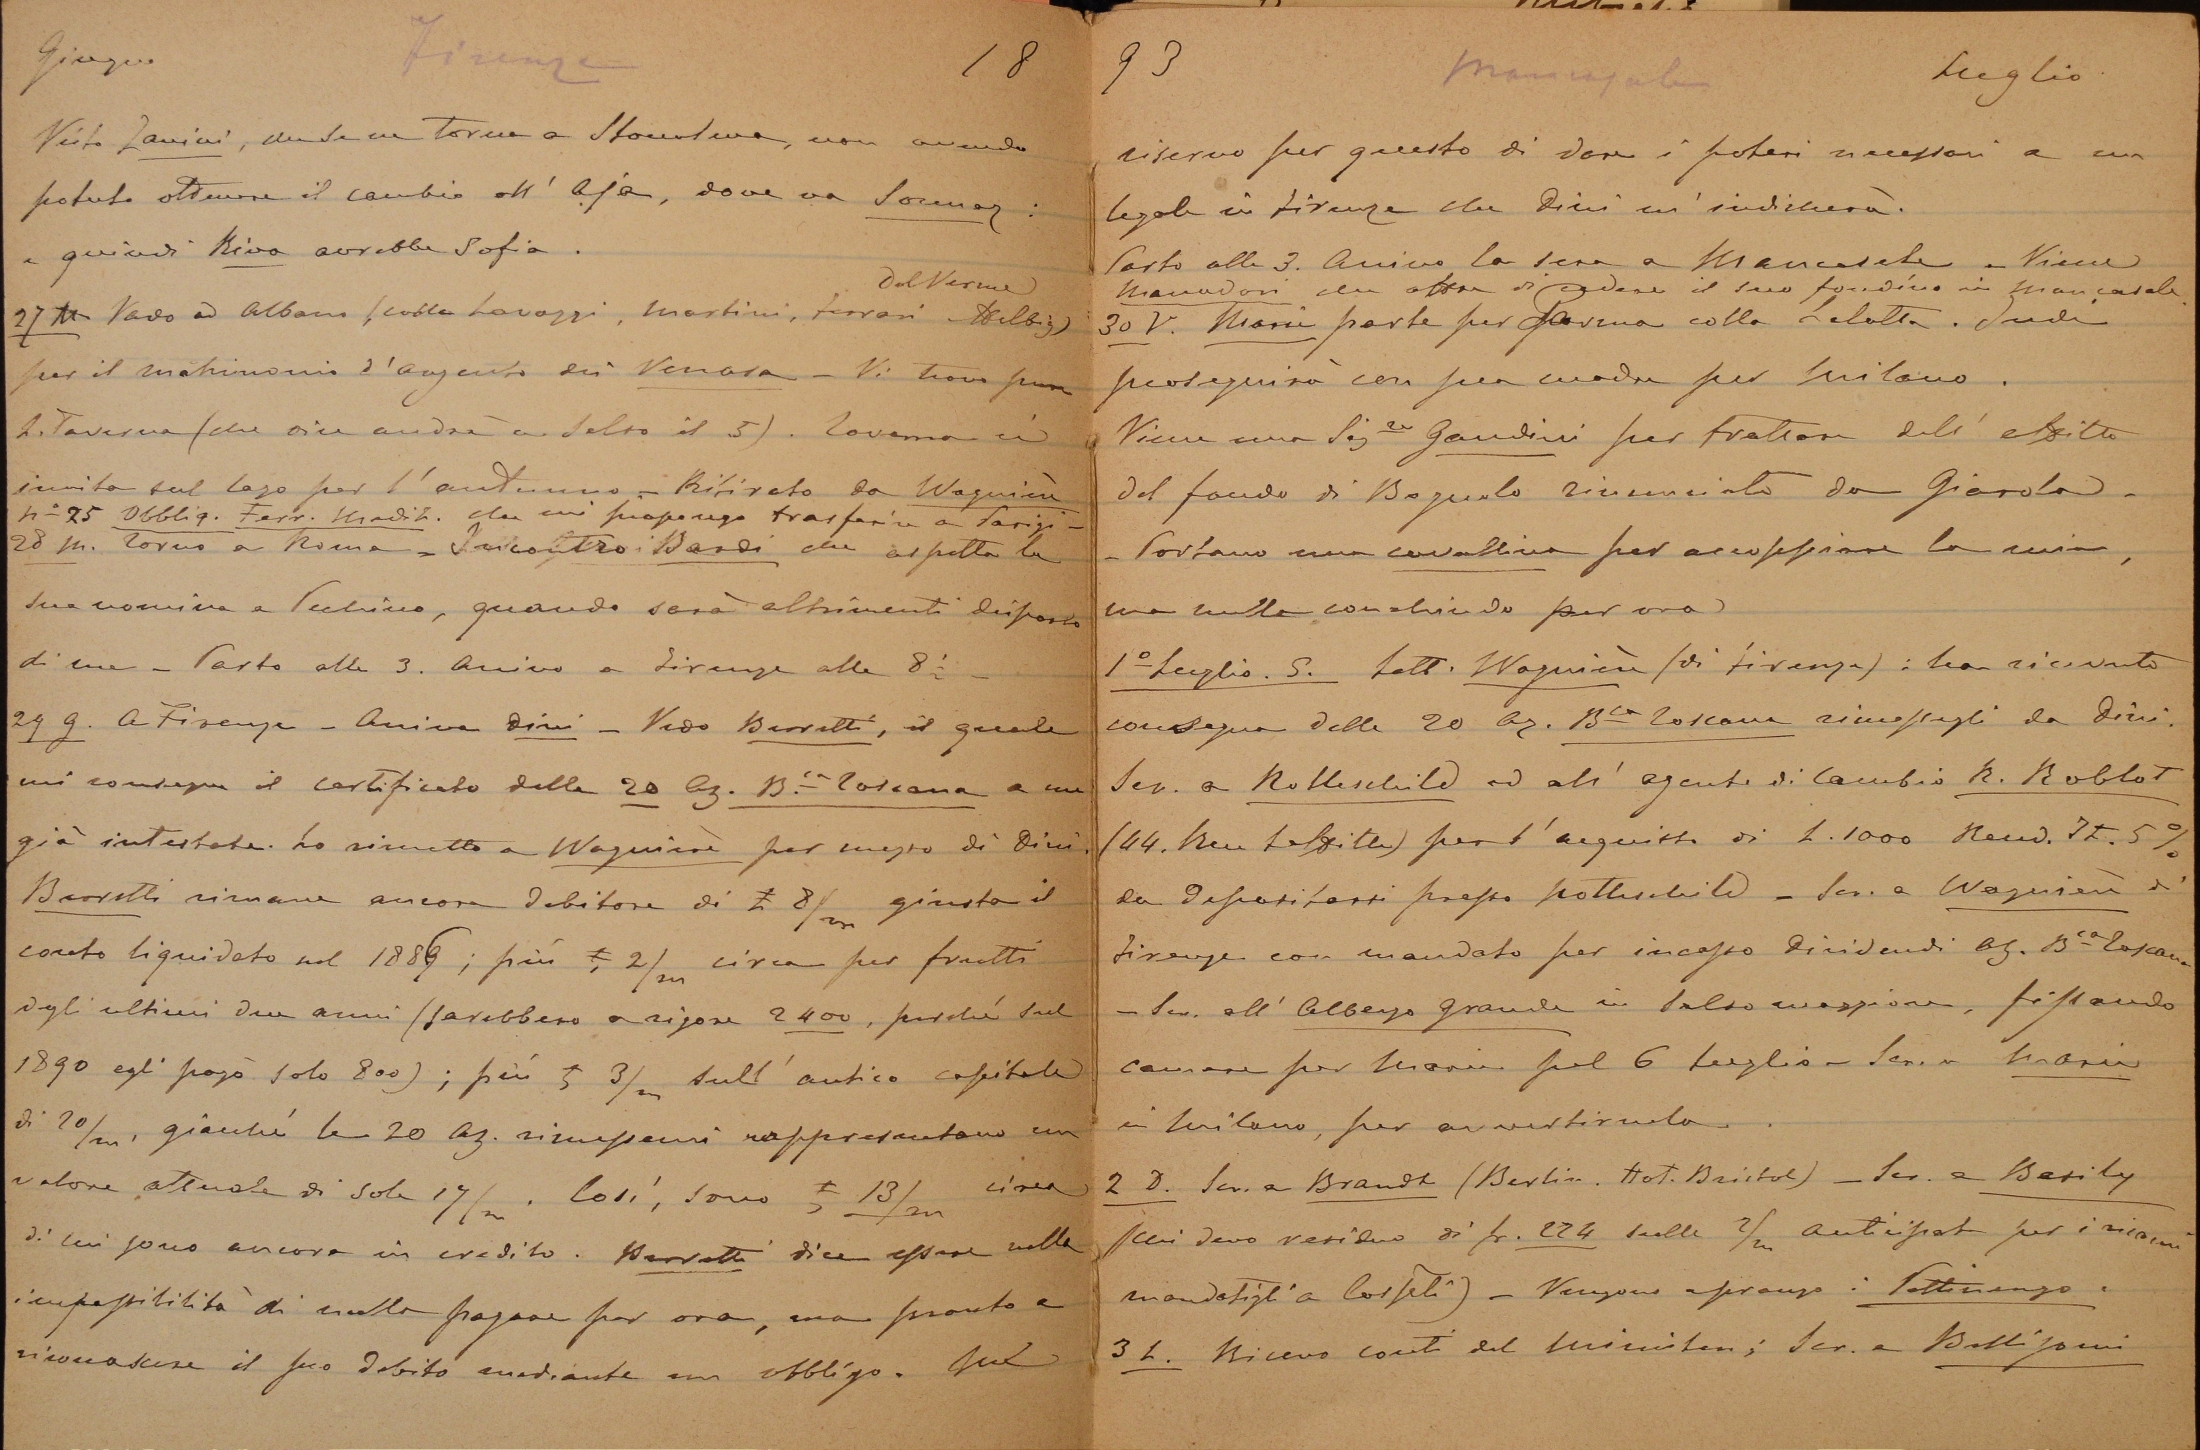 Giugno Firenze 18
Visto Zanini, che se ne torna a Stoccolma, non avendo
potuto ottenere il cambio all' Aja, dove va Sonnaz :
e quindi Riva avrebbe Sofia .
Dal Verme
27 M Vado ad Albano (colla Lavaggi, Martini, Ferrari Helbig)
per il matrimonio d'argento dei Venosa - Vi trovo pure
L. Taverna (che dice andrà a Salso il 5) . Taverna ci
invita sul lago per l'autunno - Ritirato da Wagnière
n° 25 Obblig. Ferr. Medit. che mi propongo trasferire a Parigi -
28 M. Torno a Roma - Incontro Bardi che aspetta la
sua nomina a Pechino, quando sarà altrimenti disposto
di me - Parto alle 3. Arrivo a Firenze alle 8 ½ -
29 G. A Firenze - Arriva Dini - Vedo Barratti, il quale
mi consegna il certificato delle 20 Az. B.ca Toscana a me
già intestate. Lo rimetto a Wagnière per mezzo di Dini.
Barratti rimane ancora debitore di £ 8/m giusta il
conto liquidato nel 1889 ; più £ 2/m circa per frutti
degli ultimi due anni (sarebbero a rigore 2400, perché sul
1890 egli pagò solo 800) ; più £ 3/m sull' antico capitale
di 20/m, giacché le 20 Az. rimessemi rappresentano un
valore attuale di sole 17/m . Così, sono £ 13/m circa
di cui sono ancora in credito . Barratti dice essere nella
impossibilità di nulla pagare per ora, ma pronto a
riconoscere il suo debito mediante un obbligo . Mi
93 Mancasale Luglio
riservo per questo di dare i poteri necessari a un
legale in Firenze che Dini m' indicherà.
Parto alle 3. Arrivo la sera a Mancasale - Viene
Manodori che di cedere il suo fondino in Mancasale.
30 V. Maria parte per Parma colla . Indi
proseguirà con sua madre per Milano .
Viene una Sig.ra Gandini per trattare dell' affitto
del fondo di Bagnolo rinunciato da Giarola -
- Portano una cavallina per accoppiare la mia,
ma nulla conchiudo per ora
1° Luglio. S. Lett. Wagnière (di Firenze) : ha ricevuto
consegna delle 20 Az. B.ca Toscana rimessegli da Dini.
Scr. a Rothschild ed all' agente di cambio R. Roblot
(44. Rue Laffitte) per l'acquisto di L. 1000 Rend. It. 5%
da depositarsi presso Rothschild - Scr. a Wagnière di
Firenze con mandato per incasso dividendi Az. B.ca Toscana
- Scr. all' Albergo Grande in Salsomaggiore, fissando
camere per Maria pel 6 Luglio - Scr. a Maria
in Milano, per avvertirnela .
2 D. Scr. a Brandt (Berlin. Hot. Bristol) - Scr. a Basily
(cui devo residuo di fr. 224 sulle 2/m anticipat per i
mandatigli a ) - Vengono a pranzo i Pettinengo .
3 L. Ricevo conti del Ministero; Scr. a Bottigomi